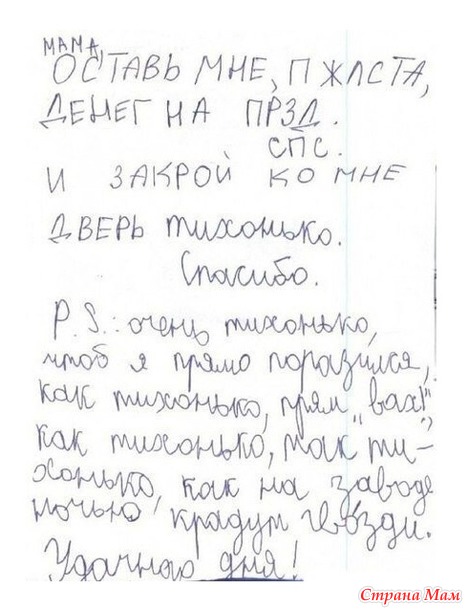 МАМА,
ОСТАВЬ МНЕ, ПЖЛСТА,
ДЕНЕГ НА ПРЗД.
СПС.
И ЗАКРОЙ КО МНЕ
ДВЕРЬ тихонько.
Спасибо.
P.S.: очень тихонько,
чтоб я прямо поразился,
как тихонько, прям „вах!",
как тихонько, так ти-
хонько, как на заводе
ночью крадут гвозди.
Удачного дня!
Страна Мам